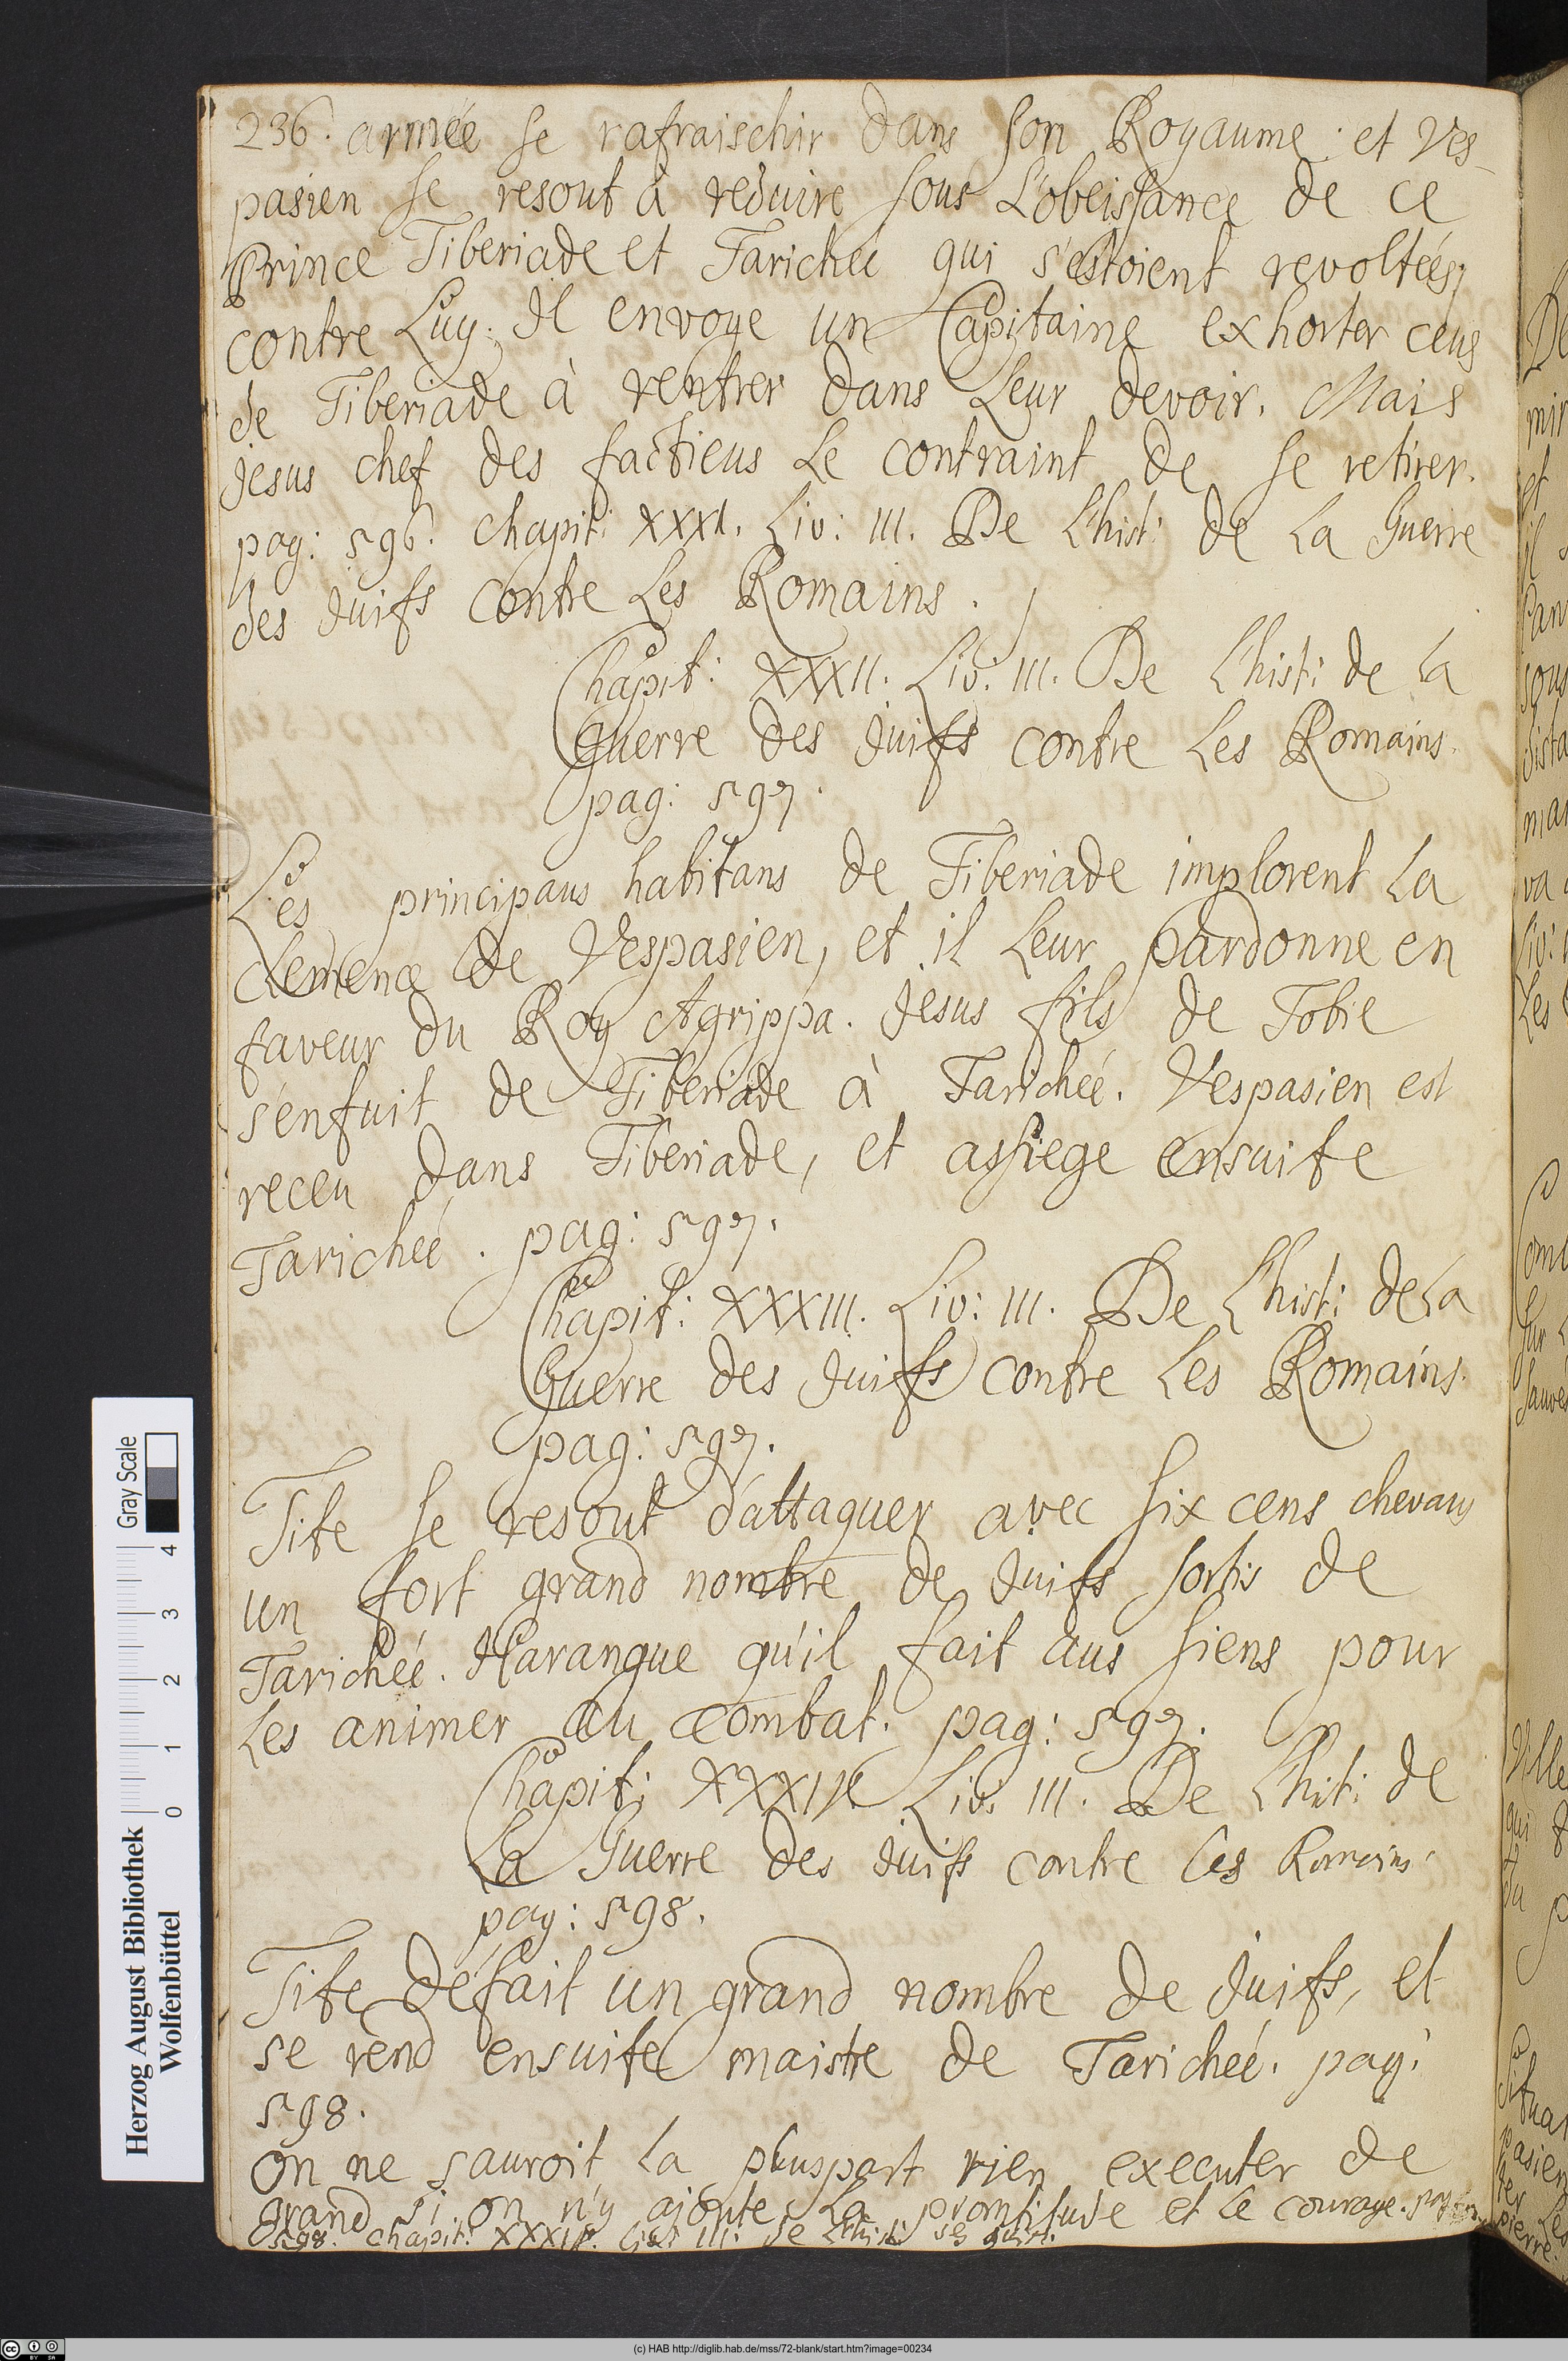 236. armée se rafraischir dans son Royaume: et Ves-
pasien se resout à reduire sous L'obeissance de ce
Prince Tiberiade et Tarichée qui s'estoient revoltées
contre Luy. Il envoye un Capitaine exhorter ceus
de Tiberiade à rentrer dans Leur devoir. Mais
Jesus chef des factieus Le contraint de se retirer.
pag: 596. chapit: XXXI. Liv: III. De L'hist: de La Guerre
des Juifs contre Les Romains.
Chapit: XXXII. Liv: III. De L'hist: de La
Guerre des Juifs contre Les Romains.
pag: 597.
Les principaus habitans de Tiberiade implorent La
Clemence de Vespasien, et il Leur pardonne en
faveur du Roy Agrippa. Jesus fils de Tobie
s'enfuit de Tiberiade à Tarichée. Vespasien est
receu dans Tiberiade, et assiege ensuite
Tarichée. pag: 597.
Chapit: XXXIII. Liv: III. De L'hist: de La
Guerre des Juifs contre Les Romains.
pag: 597.
Tite se resout d'attaquer avec six cens chevaus
un fort grand nombre de Juifs sortis de
Tarichée. Harangue qu'il fait aus siens pour
Les animer au combat. pag: 597.
Chapit: XXXIV. Liv: III. De L'hist: de
La Guerre des Juifs contre Les Romains.
pag: 598.
Tite défait un grand nombre de Juifs, et
se rend ensuite maistre de Tarichée. pag:
598.
On ne sauroit la pluspart rien executer de
grand si on n'y ajoute La promtitude et Le courage. pag:
598. chapit: XXXIV. Liv: III. De L'hist: des Juifs.
Gray Scale
4
3
2
1
0
Herzog August Bibliothek
Wolfenbüttel
(c) HAB http://diglib.hab.de/mss/72-blank/start.htm?image=00234